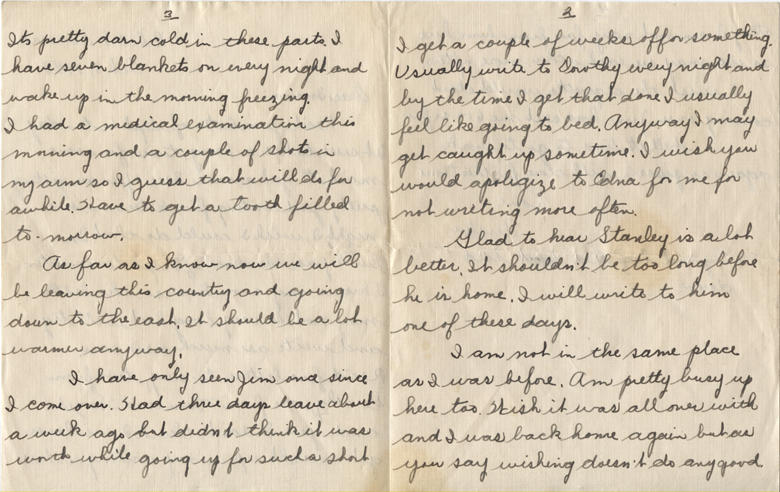 3
Its pretty darn cold in these parts. I
have seven blankets on every night and
wake up in the morning freezing
I had a medical examination this
morning and a couple of shots in
my arm so I guess that will do for
awhile. Have to get a tooth filled
to-morrow.
As far as I know now we will
be leaving this country and going
down to the east. It should be a lot
warmer anyway.
I have only seen Jim once since
I come over. Had three days leave about
a week ago but didn't think it was
worth while going up for such a short
2
I get a couple of weeks off or something
Usually write to Dorothy every night and
by the time I get that done I usually
feel like going to bed. Anyway I may
get caught up sometime. I wish you
would apoligize to Edna for me for
not writing more often.
Glad to hear Stanley is a lot
better. It shouldn't be too long before
he is home. I will write to him
one of these days.
I am not in the same place
as I was before. Am pretty busy up
here too. Wish it was all over with
and I was back home again but as
you say wishing doesn't do any good.